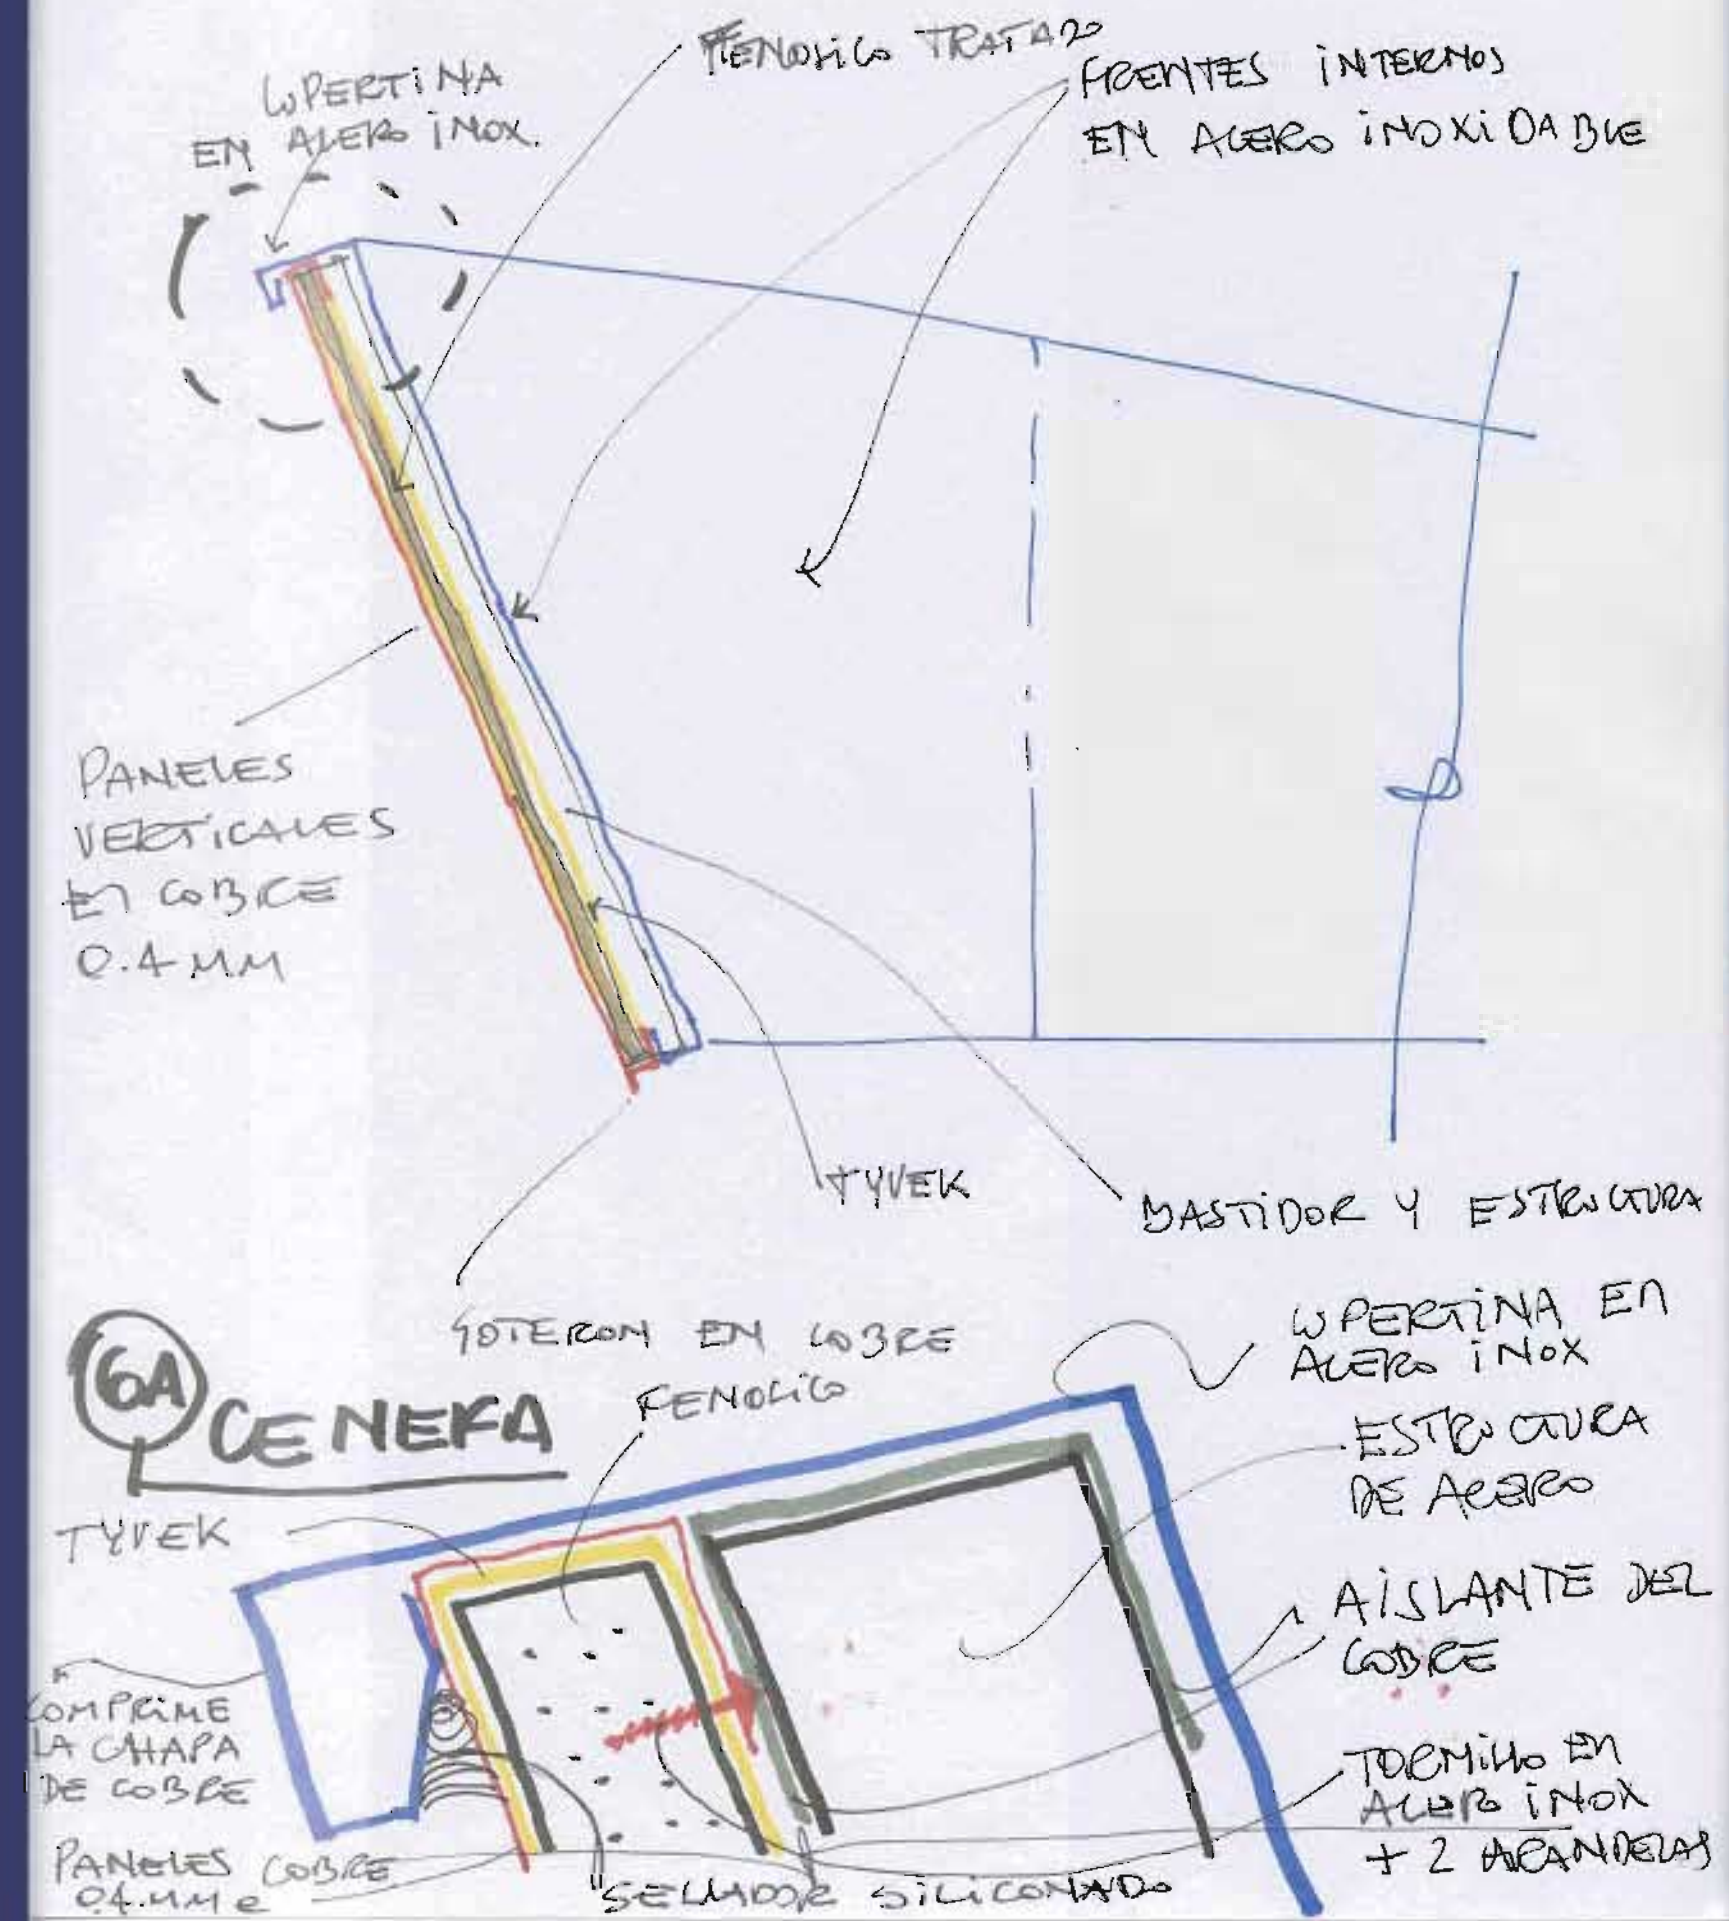 CUPERTINA
EN ACERO INOX.
FENOLICO TRATADO
FRENTES INTERNOS
EN ACERO INOXIDABLE
PANELES
VERTICALES
EN COBRE
0.4 MM
TYVEK
BASTIDOR Y ESTRUCTURA
GOTERON EN COBRE
6A CENEFA
FENOLICO
CUPERTINA EN
ACERO INOX
ESTRUCTURA
DE ACERO
TYVEK
AISLANTE DEL
COBRE
COMPRIME
LA CHAPA
DE COBRE
TORNILLO EN
ACERO INOX
+ 2 ARANDELAS
PANELES COBRE
04.MM e
SELLADOR SILICONADO